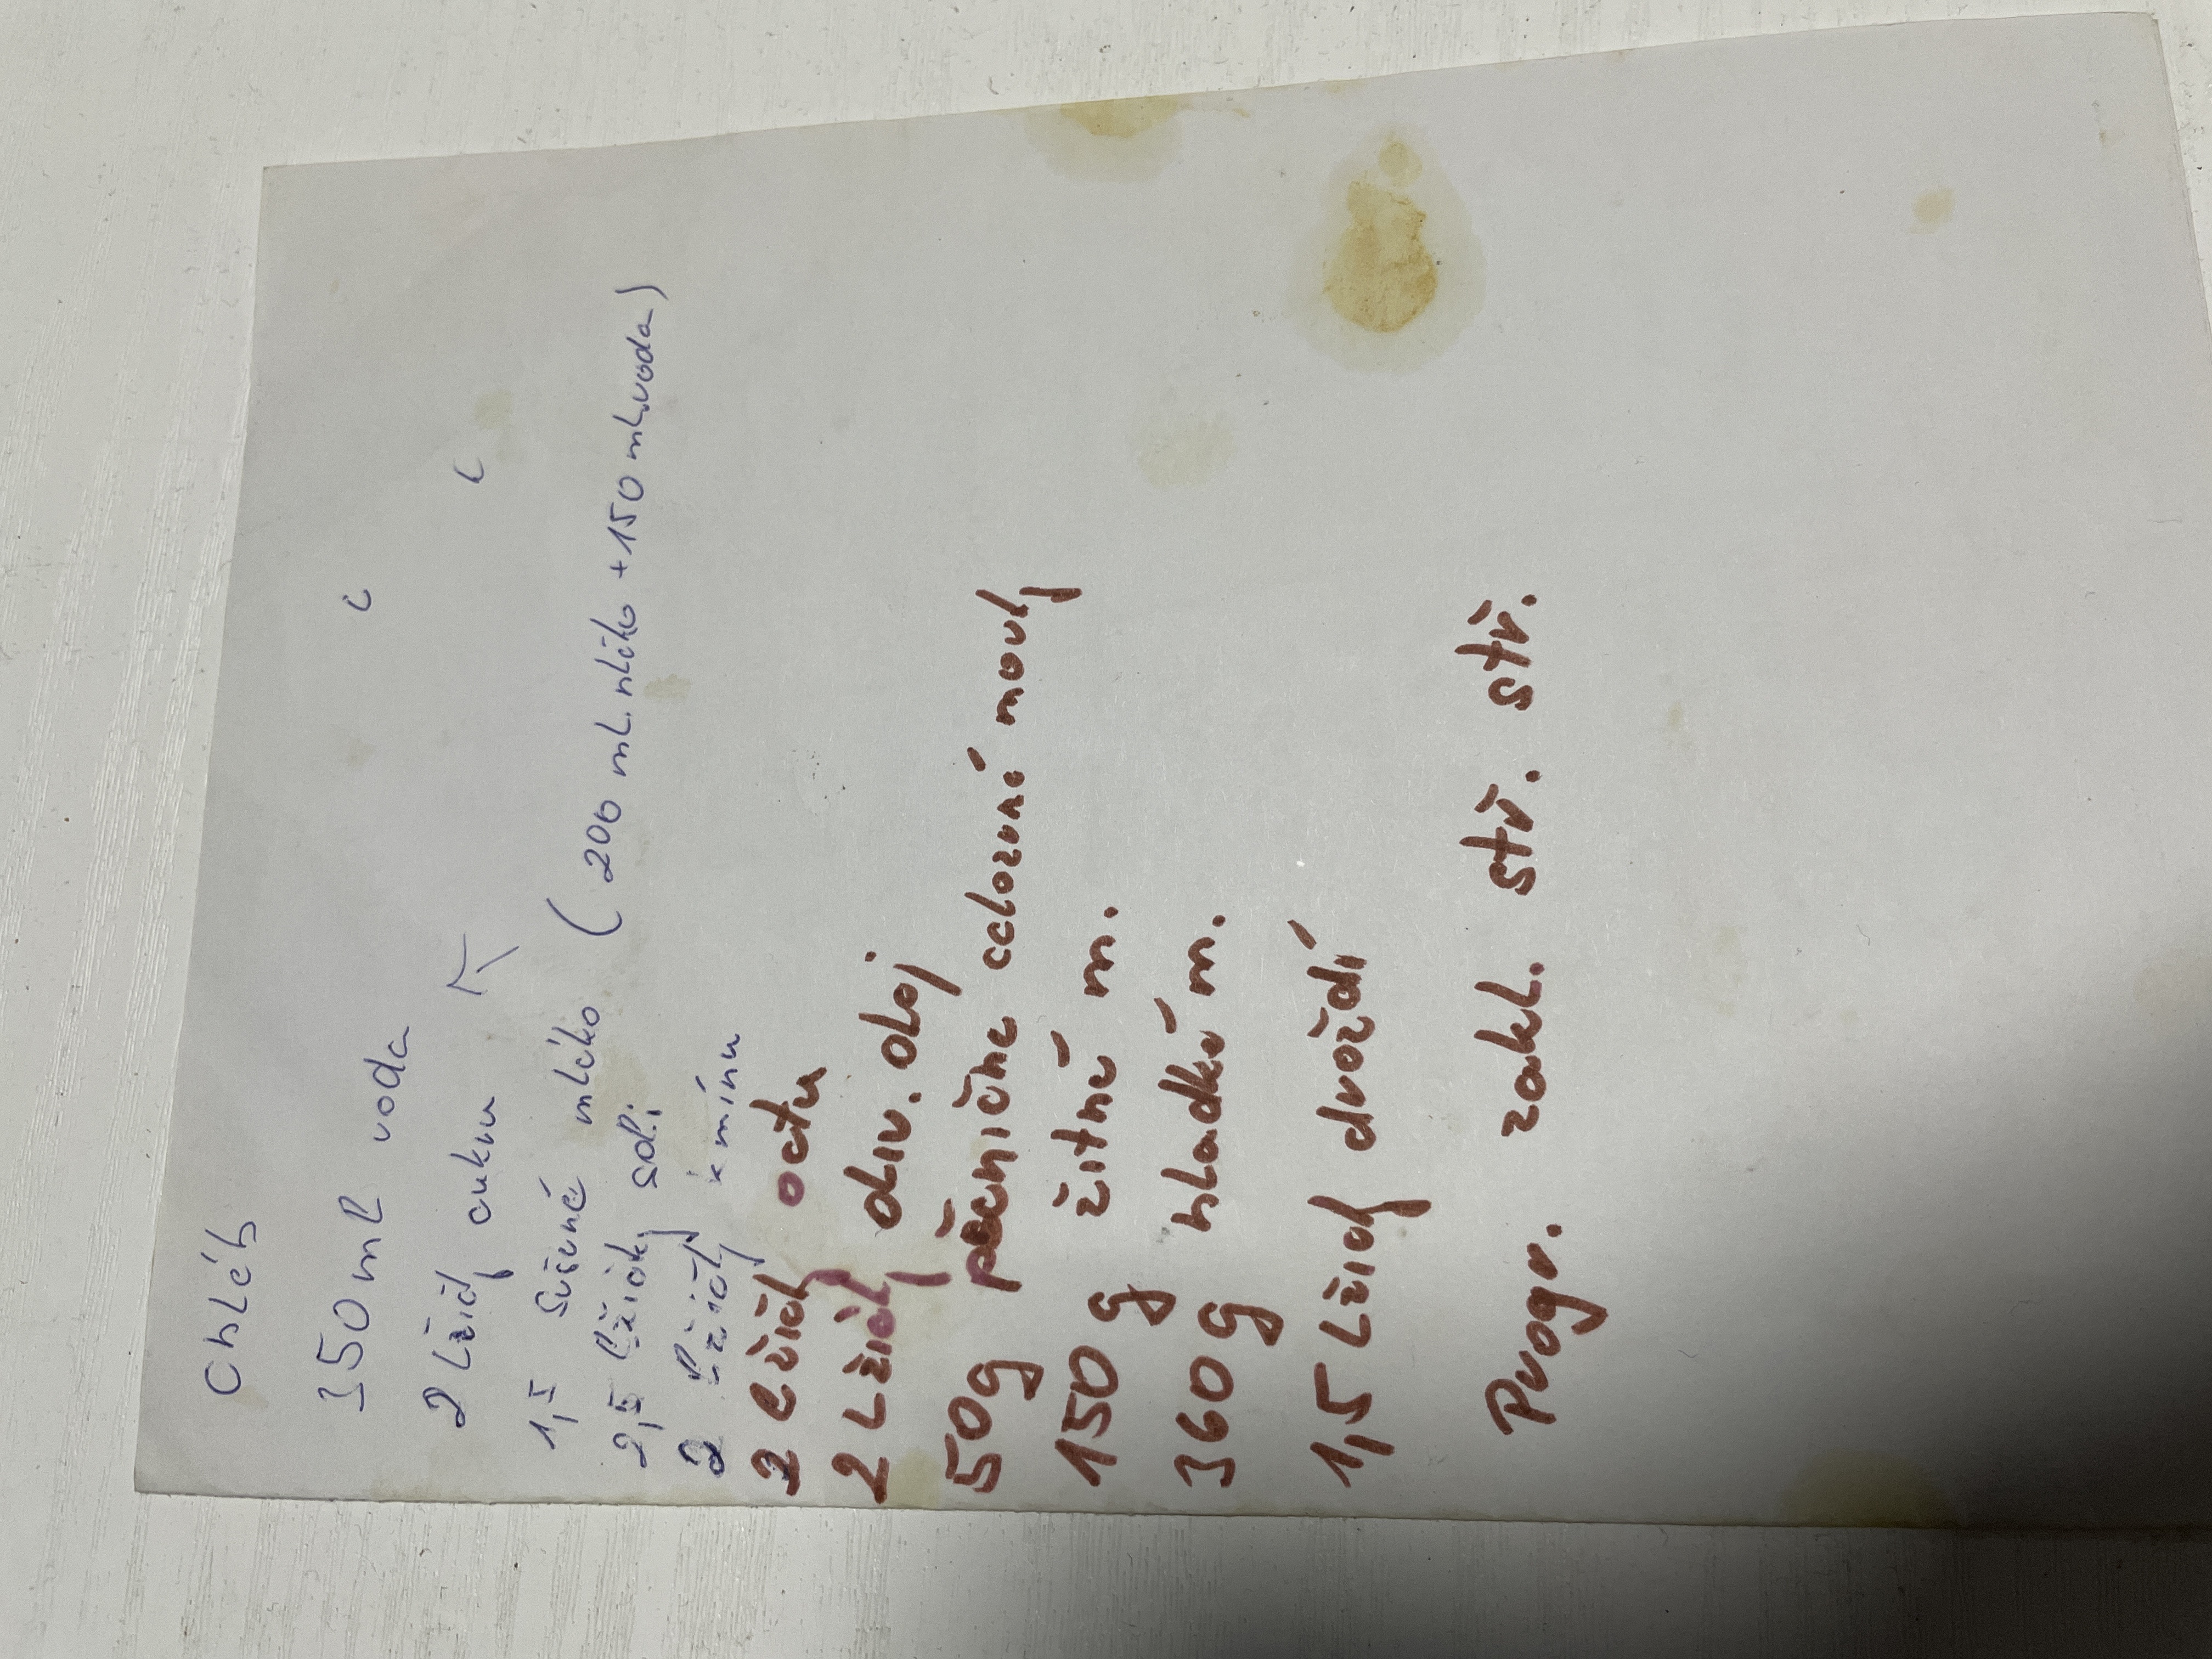 Chléb
350 ml voda
2 Lžičky cukru
1,5 sušené mléko (200 ml. mléko + 150 ml. voda)
2,5 lžičky soli
2 lžičky kmínu
2 lžičky octu
2 Lžičky oliv. olej
50g pšenične celozrné mouky
150 g žitné m.
360 g hladké m.
1,5 Lžičky droždí
Progr. zakl. stř. stř.